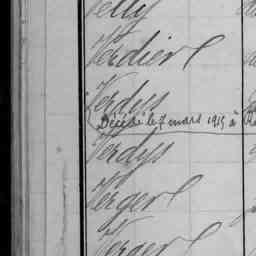 Velly
Verdier
Verdys
Décédé le 7 mars 1915 à
Verdys
Verger
Verger